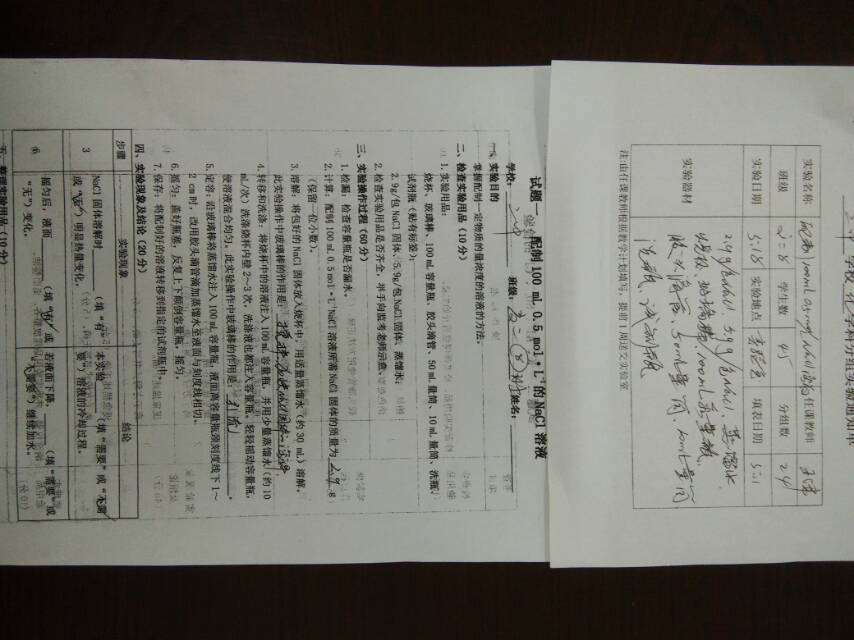 学校 化学科分组实验通知单
实验名称 配制100mL 0.5mol/L NaCl溶液 任课教师
班级 2=8 学生数 45 分组数 24
实验日期 5.18 实验地点 实验室 填表日期 5.1
实验器材
2.9g/包NaCl, 5.9g/包NaCl, 蒸馏水
烧杯, 玻璃棒, 100mL容量瓶,
胶头滴管, 50mL量筒, 10mL量筒,
洗瓶, 试剂瓶
注:由任课教师根据教学计划填写,提前1周送交实验室
试题一 配制100 mL 0.5 mol·L⁻¹的NaCl溶液
学校: 班级: 高二(8) 姓名:
一、实验目的
掌握配制一定物质的量浓度的溶液的方法。
二、检查实验用品(10分)
1. 实验用品:
烧杯、玻璃棒、100 mL容量瓶、胶头滴管、50 mL量筒、10 mL量筒、洗瓶、
试剂瓶(贴有标签);
2.9g/包NaCl固体、5.9g/包NaCl固体、蒸馏水;
2. 检查实验用品是否齐全,举手向监考老师示意。
三、实验操作过程(60分)
1. 检漏:检查容量瓶是否漏水。
2. 计算:配制100 mL 0.5 mol·L⁻¹NaCl溶液所需NaCl固体的质量为 2.9 g
(保留一位小数)。
3. 溶解:将包好的NaCl固体放入烧杯中,用适量蒸馏水(约30 mL)溶解,
此实验操作中玻璃棒的作用是: 搅拌,加快NaCl固体溶解
4. 转移和洗涤:将烧杯中的溶液注入100 mL容量瓶,并用少量蒸馏水(约10
mL/次)洗涤烧杯内壁2~3次,洗涤液也都注入容量瓶。轻轻摇动容量瓶,
使溶液混合均匀。此实验操作中玻璃棒的作用是: 引流
5. 定容:沿玻璃棒将蒸馏水注入100 mL容量瓶,液面离容量瓶颈刻度线下1~
2 cm时,改用胶头滴管滴加蒸馏水至液面与刻度线相切。
6. 摇匀:盖好瓶塞,反复上下颠倒容量瓶,摇匀。
7. 保存:将配制好的溶液转移到指定的试剂瓶中。
四、实验现象及结论(20分)
步骤 实验现象 结论
3 NaCl固体溶解时 (填“有” 本实验 (填“需要”或“不需
或“无”)明显热量变化。 要”)溶液的冷却过程。
6 摇匀后,液面 (填“有”或 若液面下降, (填“需要”或
“无”)变化。 “不需要”)继续加水。
五、整理实验用品(10分)